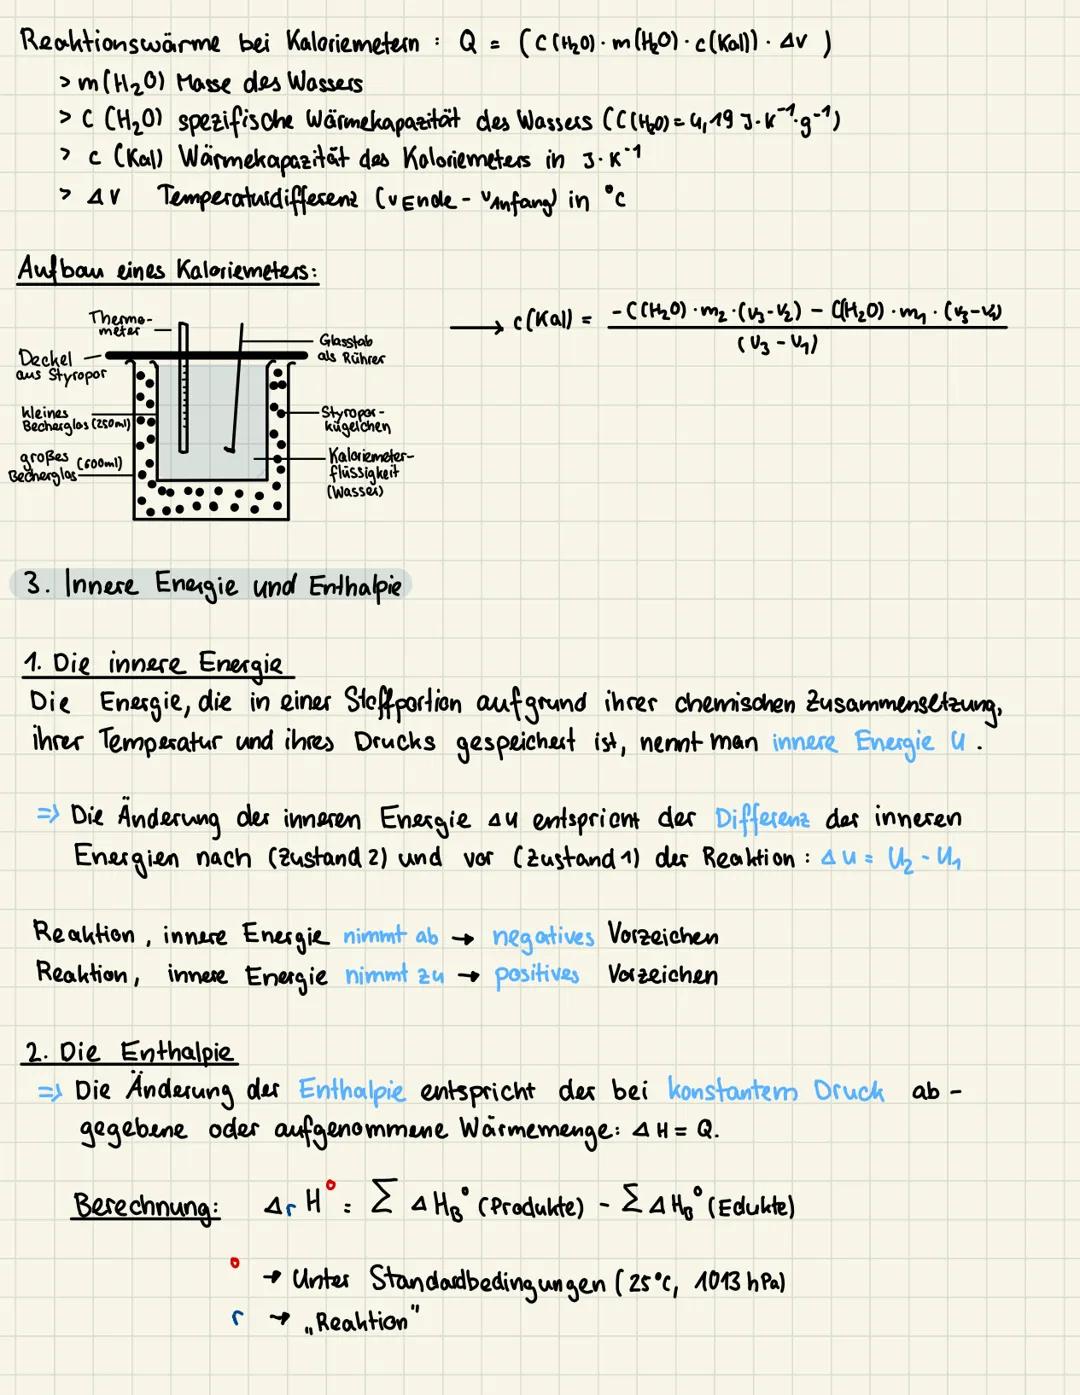 Reaktionswärme bei Kaloriemetern : Q = (C(H₂O) · m(H₂O) · c(Kal)) · ΔV )
> m(H₂O) Masse des Wassers
> C (H₂O) spezifische Wärmekapazität des Wassers (C(H₂O) = 4,19 J·K⁻¹·g⁻¹)
> c (Kal) Wärmekapazität des Koloriemeters in J·K⁻¹
> ΔV Temperatursdifferenz (vEnde - vAnfang) in °C
Aufbau eines Kaloriemeters:
→ c(Kal) = -C(H₂O)·m₂·(v₃-v₂) - C(H₂O)·m₁·(v₃-v₁)
(v₃ - v₁)
Thermo-
meter
Glasstab
als Rührer
Deckel
aus Styropor
kleines
Becherglas (250ml)
Styropor-
kügelchen
großes (600ml)
Becherglas
Kaloriemeter-
flüssigkeit
(Wasser)
3. Innere Energie und Enthalpie
1. Die innere Energie
Die Energie, die in einer Stoffportion aufgrund ihrer chemischen Zusammensetzung,
ihrer Temperatur und ihres Drucks gespeichert ist, nennt man innere Energie U .
=> Die Änderung der inneren Energie ΔU entspricht der Differenz der inneren
Energien nach (Zustand 2) und vor (Zustand 1) der Reaktion : ΔU = U₂ - U₁
Reaktion , innere Energie nimmt ab → negatives Vorzeichen
Reaktion, innere Energie nimmt zu → positives Vorzeichen
2. Die Enthalpie
=> Die Änderung der Enthalpie entspricht der bei konstantem Druck ab -
gegebene oder aufgenommene Wärmemenge: ΔH = Q.
Berechnung: ΔrH° = Σ ΔH_B° (Produkte) - Σ ΔH_B° (Edukte)
° → Unter Standardbedingungen (25°C, 1013 hPa)
r → „Reaktion"